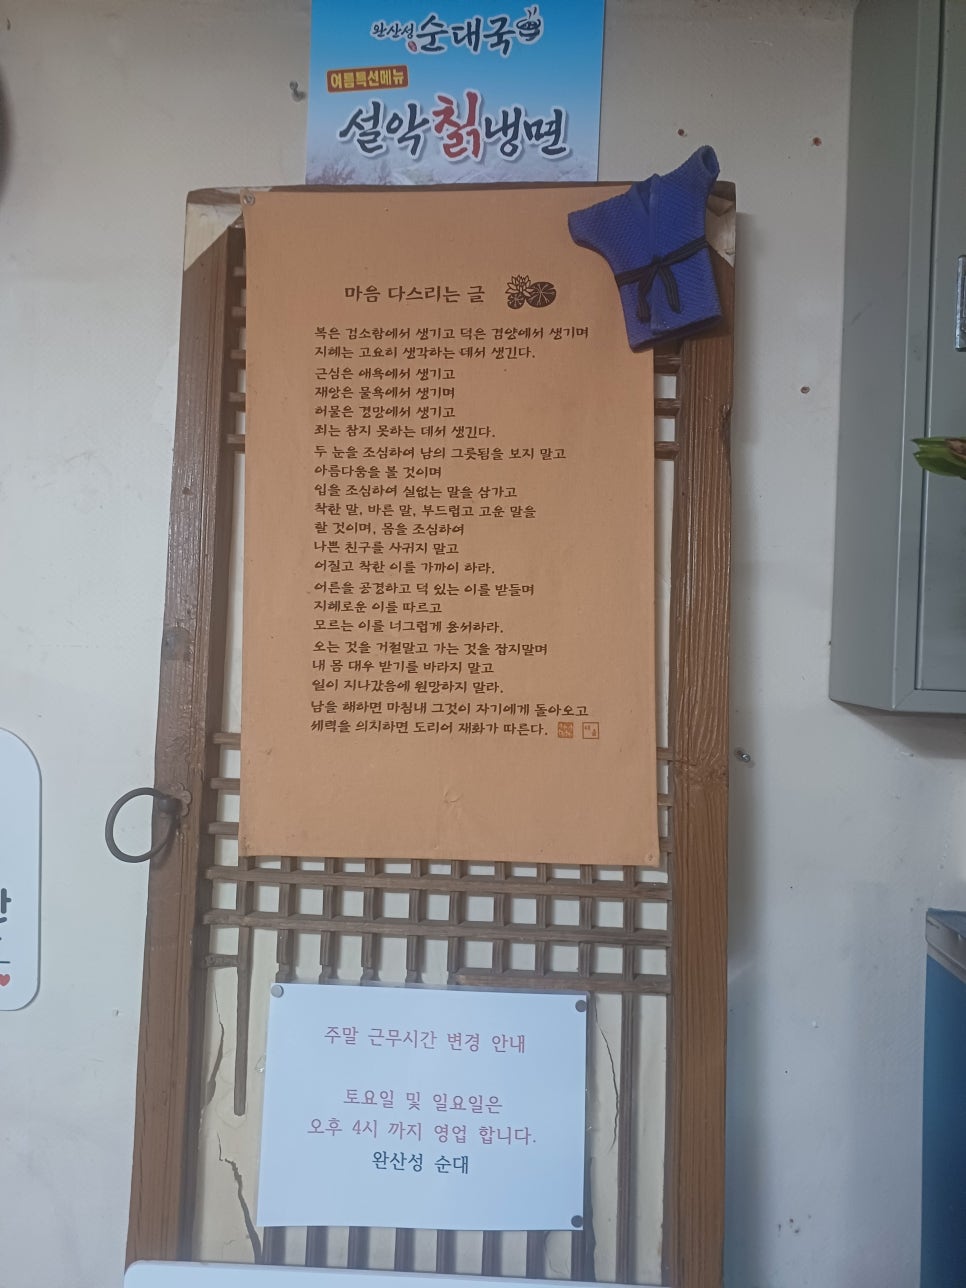 완산성 순대국
여름특선메뉴
설악칡냉면
마음 다스리는 글
복은 검소함에서 생기고 덕은 겸양에서 생기며
지혜는 고요히 생각하는 데서 생긴다.
근심은 애욕에서 생기고
재앙은 물욕에서 생기며
허물은 경망에서 생기고
죄는 참지 못하는 데서 생긴다.
두 눈을 조심하여 남의 그릇됨을 보지 말고
아름다움을 볼 것이며
입을 조심하여 실없는 말을 삼가고
착한 말, 바른 말, 부드럽고 고운 말을
할 것이며, 몸을 조심하여
나쁜 친구를 사귀지 말고
어질고 착한 이를 가까이 하라.
어른을 공경하고 덕 있는 이를 받들며
지혜로운 이를 따르고
모르는 이를 너그럽게 용서하라.
오는 것을 거절말고 가는 것을 잡지말며
내 몸 대우 받기를 바라지 말고
일이 지나갔음에 원망하지 말라.
남을 해하면 마침내 그것이 자기에게 돌아오고
세력을 의지하면 도리어 재화가 따른다.
주말 근무시간 변경 안내
토요일 및 일요일은
오후 4시 까지 영업 합니다.
완산성 순대